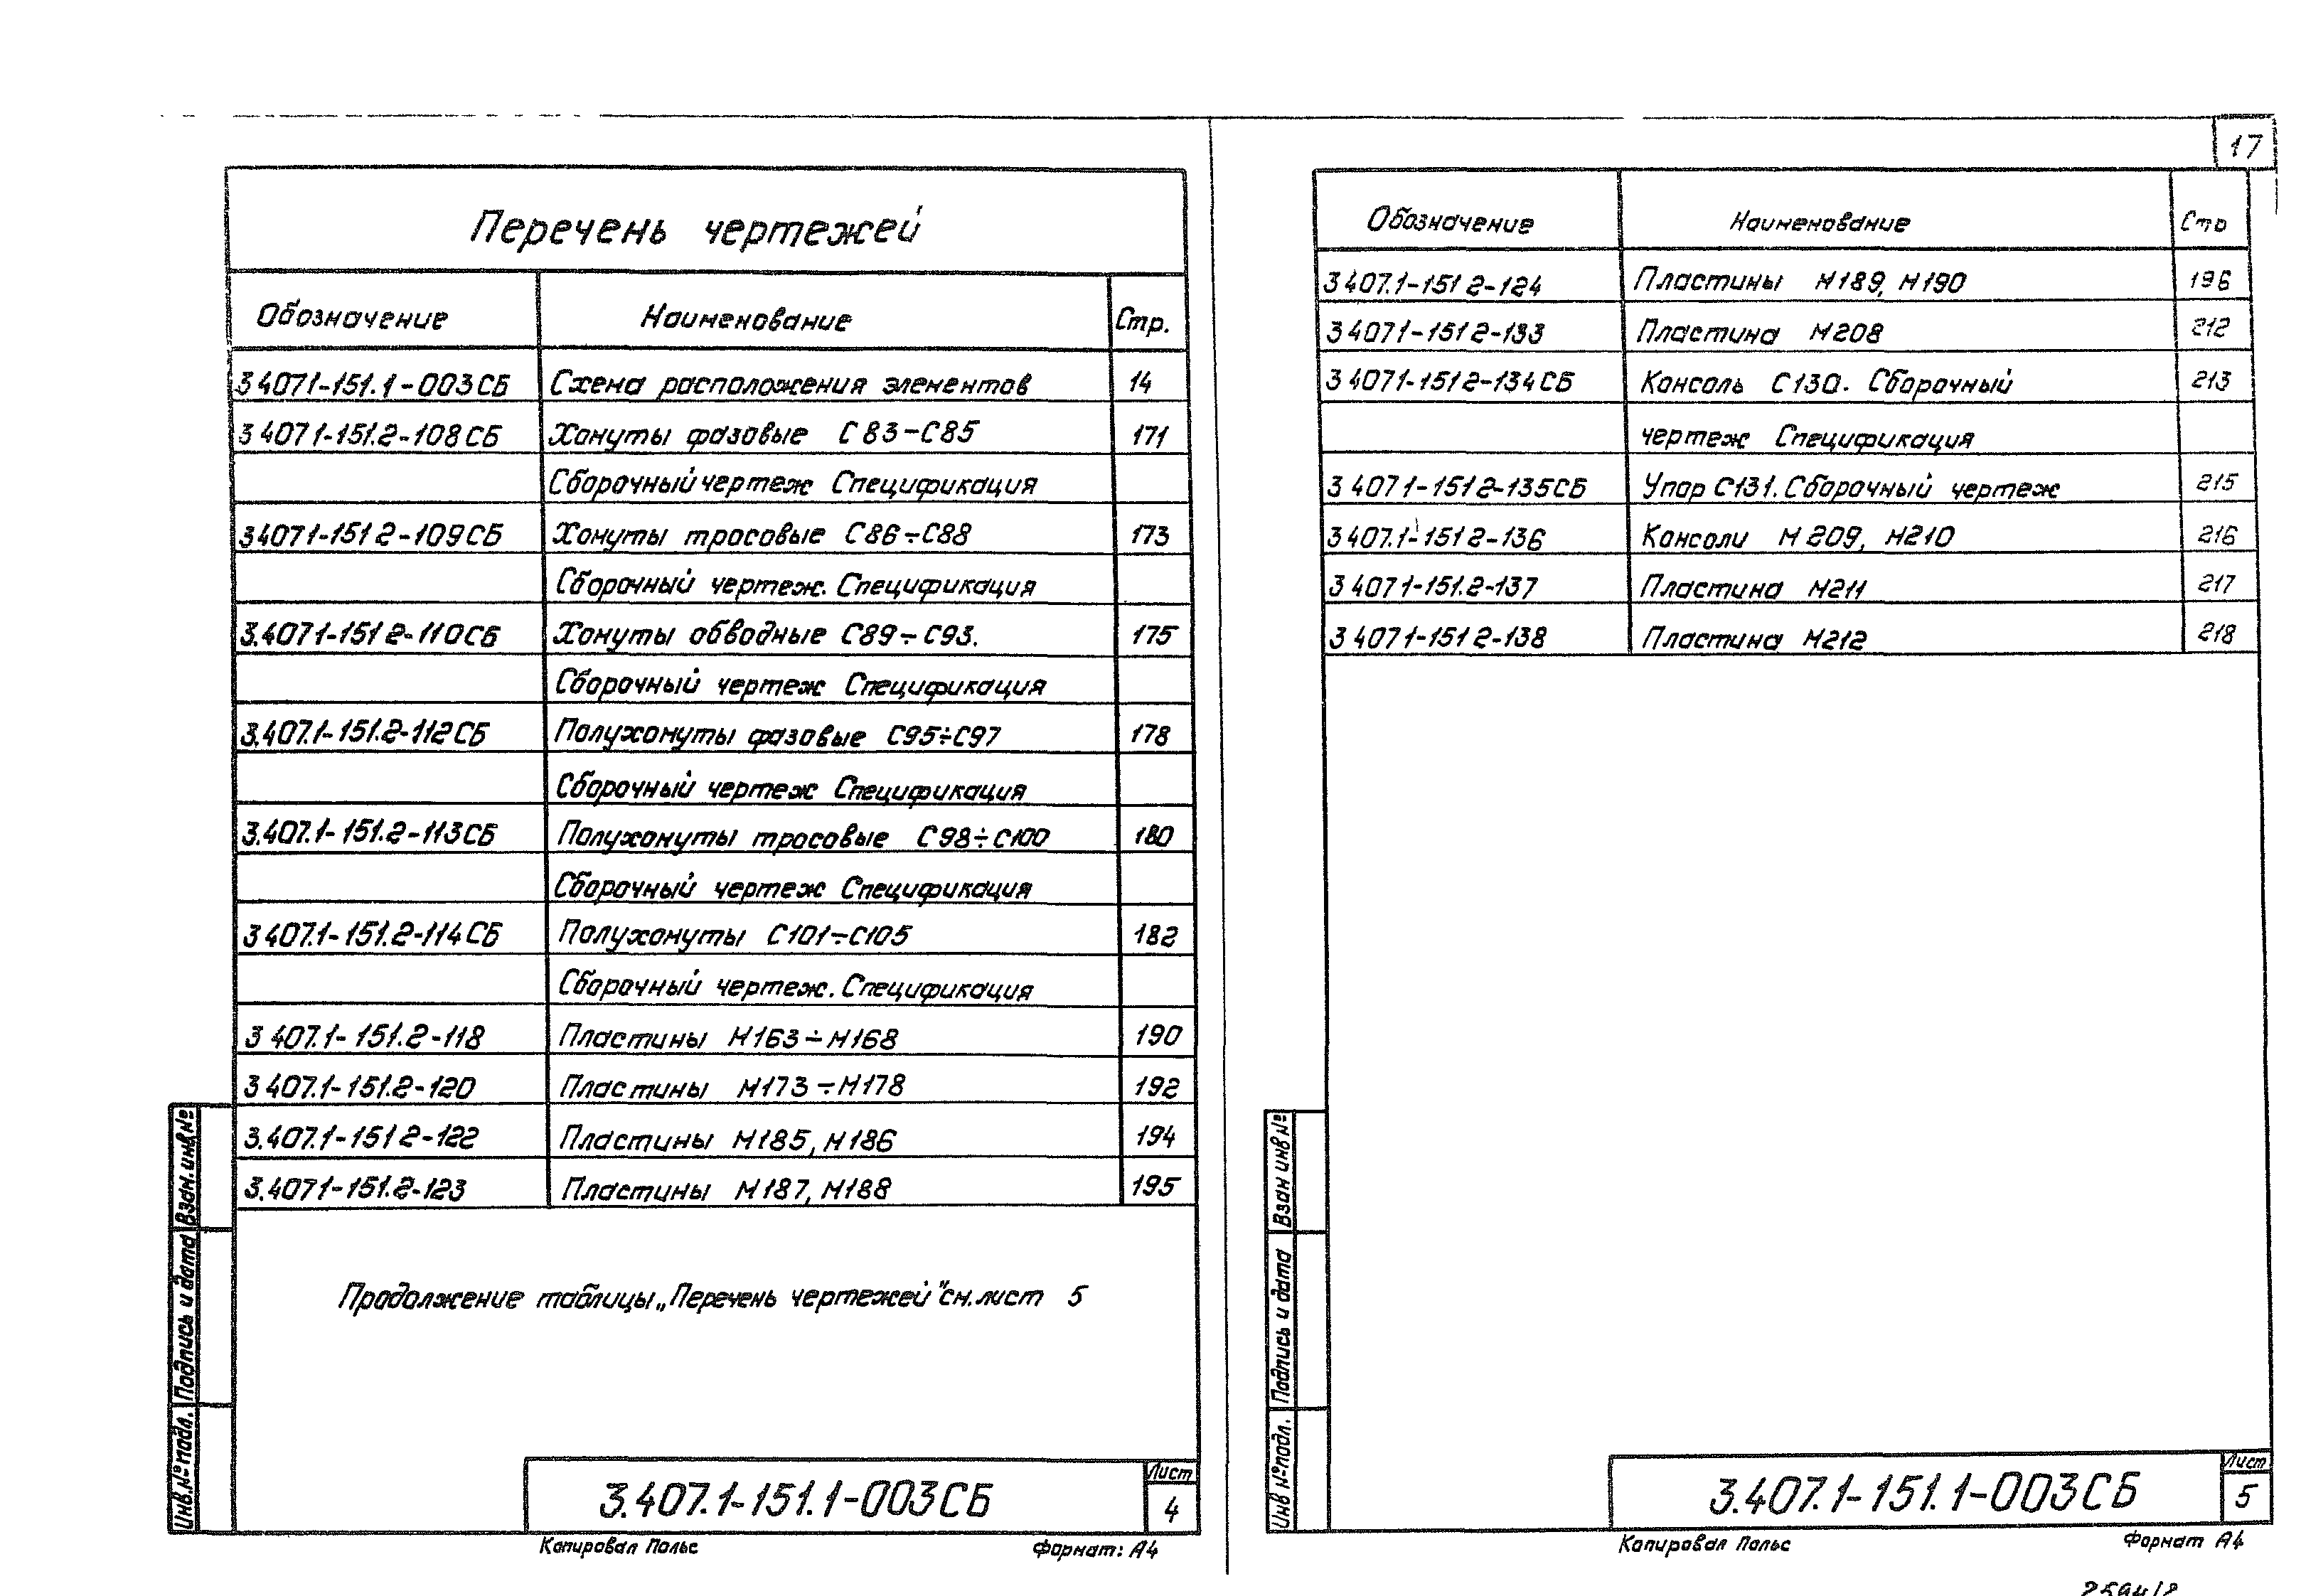 17
Перечень чертежей
Обозначение Наименование Стр.
3 4071-151.1-003СБ Схема расположения элементов 14
3 4071-151.2-108СБ Хомуты фазовые С83-С85 171
Сборочный чертеж Спецификация
34071-151 2-109СБ Хомуты тросовые С86÷С88 173
Сборочный чертеж. Спецификация
3.4071-151 2-110СБ Хомуты обводные С89÷С93. 175
Сборочный чертеж Спецификация
3.407.1-151.2-112СБ Полухомуты фазовые С95÷С97 178
Сборочный чертеж Спецификация
3.407.1-151.2-113СБ Полухомуты тросовые С98÷С100 180
Сборочный чертеж Спецификация
3 407.1-151.2-114СБ Полухомуты С101÷С105 182
Сборочный чертеж. Спецификация
3 407.1-151.2-118 Пластины М163÷М168 190
3 407.1-151.2-120 Пластины М173÷М178 192
3.407.1-151 2-122 Пластины М185, М186 194
3.4071-151.2-123 Пластины М187, М188 195
Продолжение таблицы „Перечень чертежей" см. лист 5
Взам. инв.№
Подпись и дата
Инв.№ подл.
3.407.1-151.1-003СБ
Лист
4
Копировал Польс Формат: А4
Обозначение Наименование Стр
3 407.1-151 2-124 Пластины М189, М190 196
3 4071-151 2-133 Пластина М208 212
3 4071-151 2-134СБ Консоль С130. Сборочный 213
чертеж Спецификация
3 4071-151 2-135СБ Упор С131. Сборочный чертеж 215
3 407.1-151 2-136 Консоли М209, М210 216
3 4071-151.2-137 Пластина М211 217
3 4071-151 2-138 Пластина М212 218
Взам инв №
Подпись и дата
Инв №подл.
3.407.1-151.1-003СБ
Лист
5
Копировал Польс Формат А4